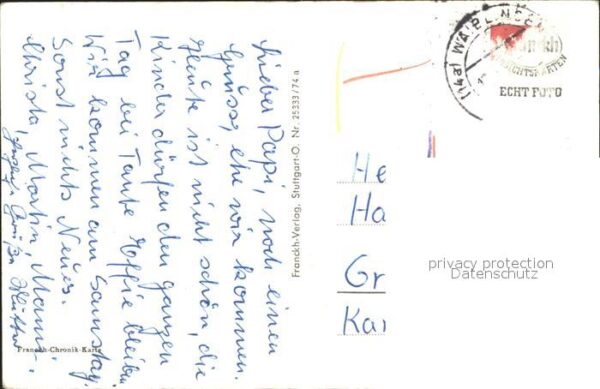 Lieber Papi, noch einen
Gruss, ehe wir kommen.
Heute ist nicht schön, die
Kinder dürfen den ganzen
Tag bei Tante Effie bleiben
Wir kommen am Samstag
Sonst nichts Neues.
Christa, Martin, Mami.
Grüße
Franckh-Chronik-Karte
Franckh-Verlag, Stuttgart-O. Nr. 25333/74a
(14a) WAIBLINGEN
ECHT FOTO
He
Ha
Gr
Kar
privacy protection
Datenschutz